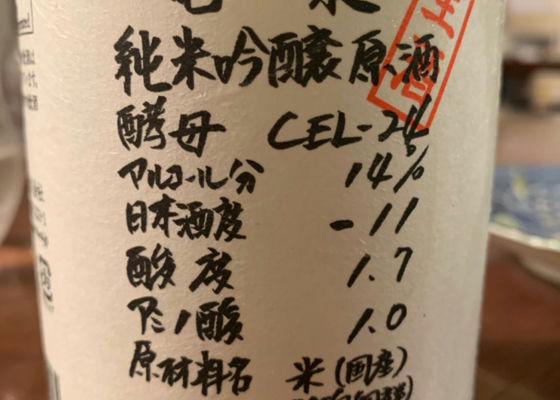 純米吟醸原酒
酵母 CEL-24
アルコール分 14%
日本酒度 -11
酸度 1.7
アミノ酸 1.0
原材料名 米(国産)